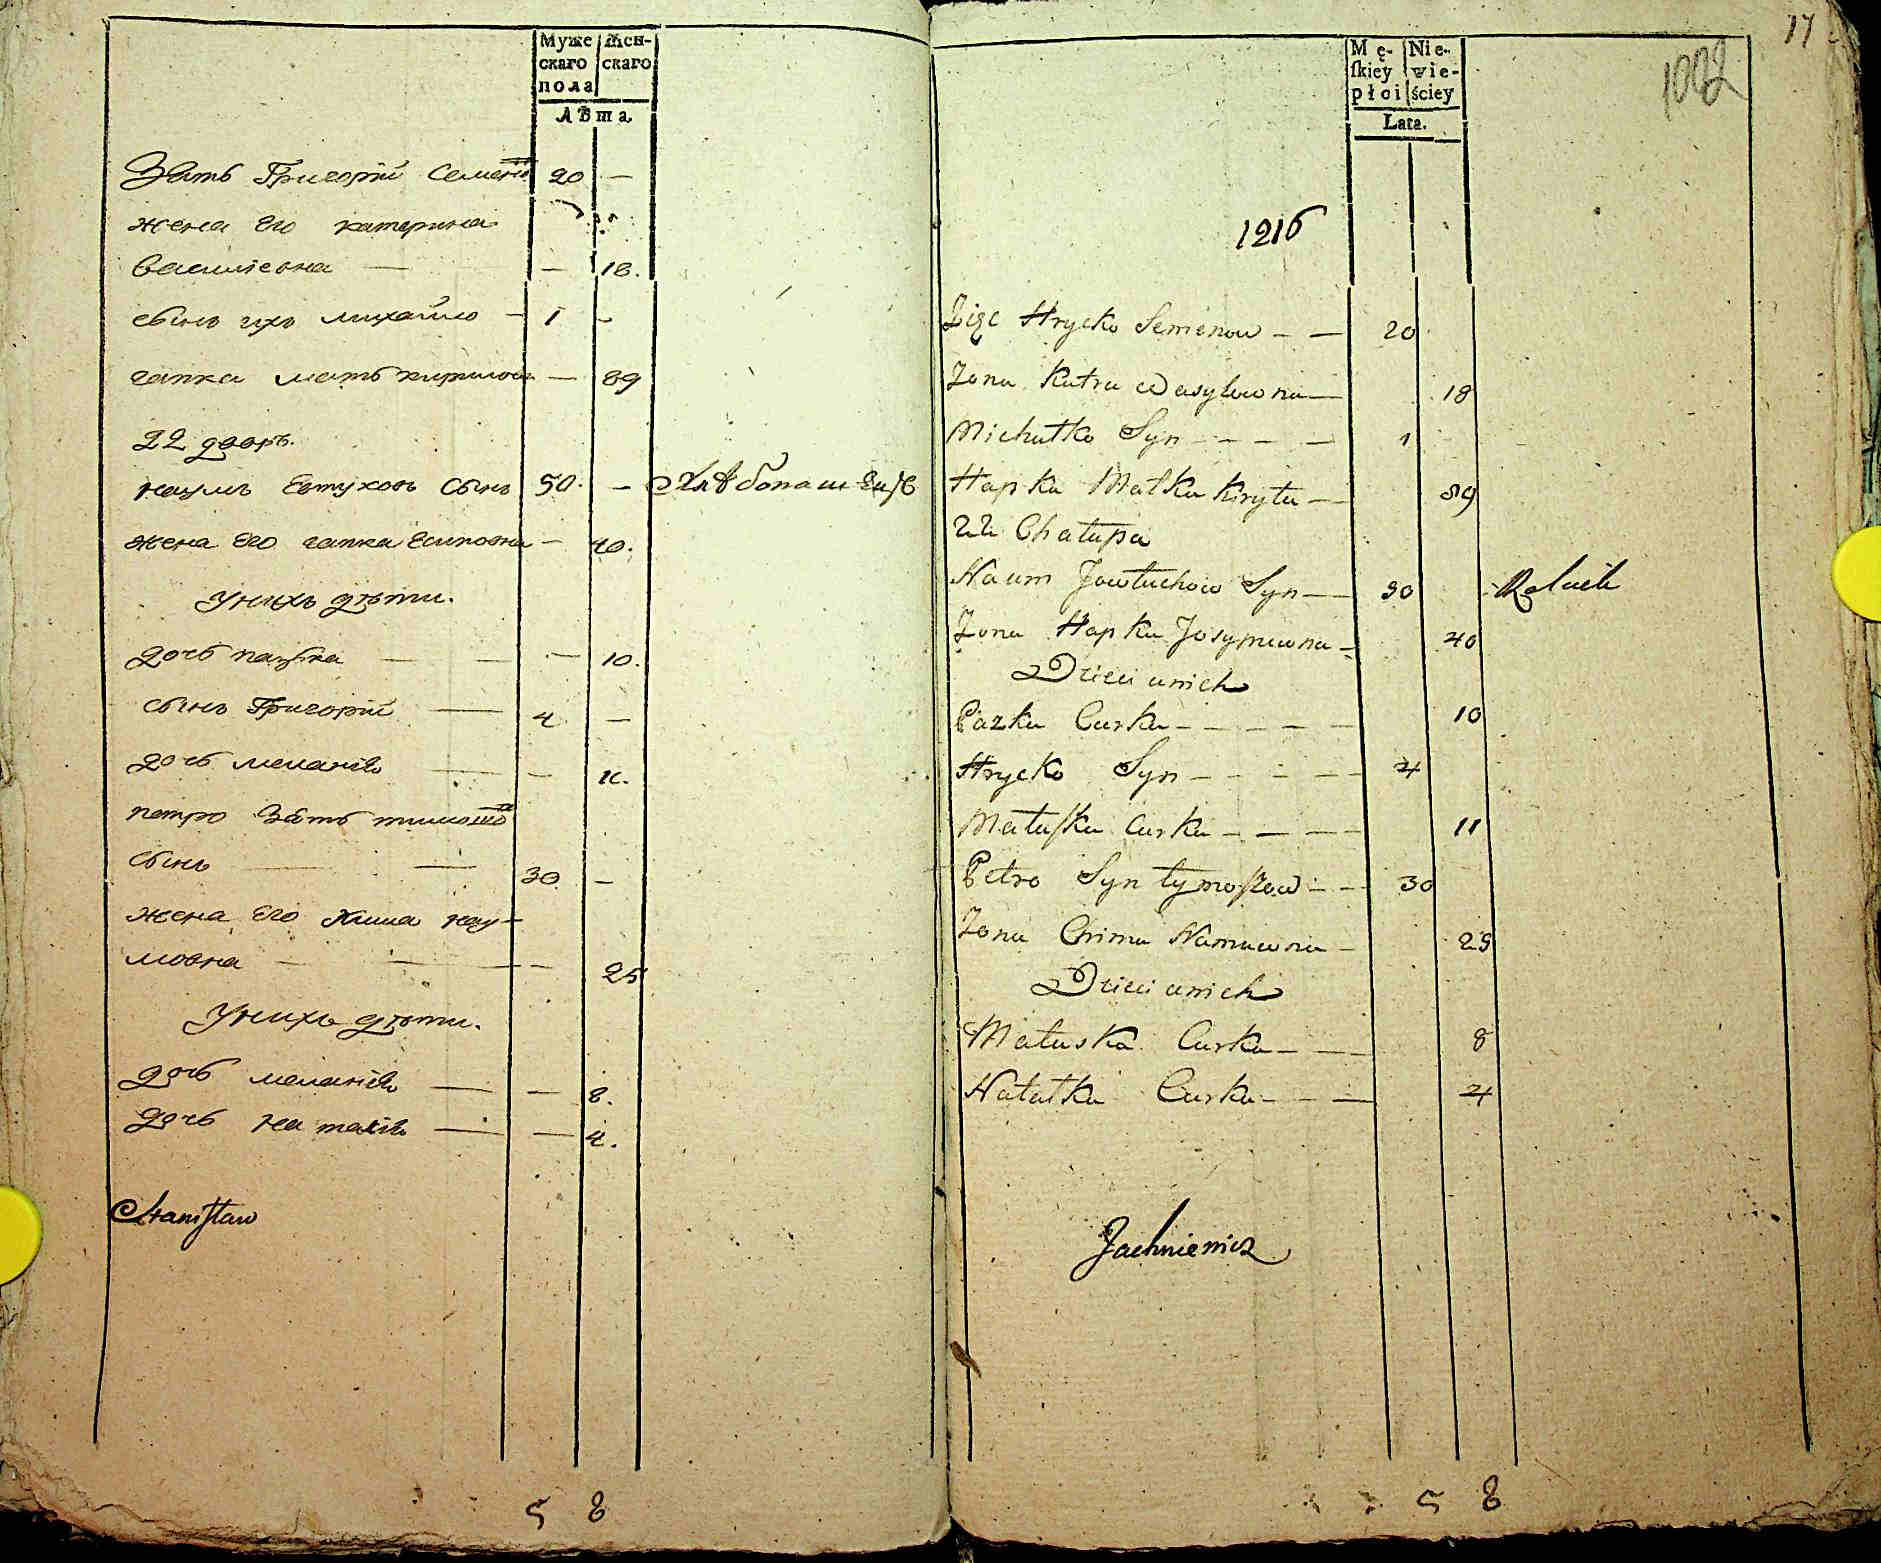 Муже Жен-
скаго скаго
пола
Лѣта
Зять Григорій Семенов 20 —
жена Его катерина
василіевна — — 18.
сынъ ихъ михайло — 1 —
гапка мать кирилова — 89
22 дворъ.
наумъ Евтуховъ сынъ 50. — Хлѣбопашецъ
жена Его гапка Есиповна — 40.
У нихъ дѣти.
дочь пазка — — — 10.
сынъ Григорій — 4 —
дочь меланія — — 11.
петро Зять тимошов
сынъ — — 30 —
жена Его Хима нау-
мовна — — — 25
У нихъ дѣти.
дочь меланія — — 8.
дочь наталія — — 4.
Stanisław
5 8
17
1002
Mę- Nie-
ſkiey wie-
płci ściey
Lata.
1216
Zięć Hrycko Semenow — — 20
Zona Katra Wasylowna — 18
Michałko Syn — — — — 1
Hapka Matka Kiryła — 89
22 Chałupa
Naum Jowtuchow Syn — — 50 - Rolnik
Zona Hapka Josypowna — 40
Dzieci u nich
Pazka Curka — — — — — 10
Hrycko Syn — — — — — 4
Małaſka Curka — — — — 11
Petro Syn tymoſzow — — 30
Zona Chima Namowna — 25
Dzieci u nich
Małaska Curka — — — 8
Natałka Curka — — — 4
Jachniewicz
5 8